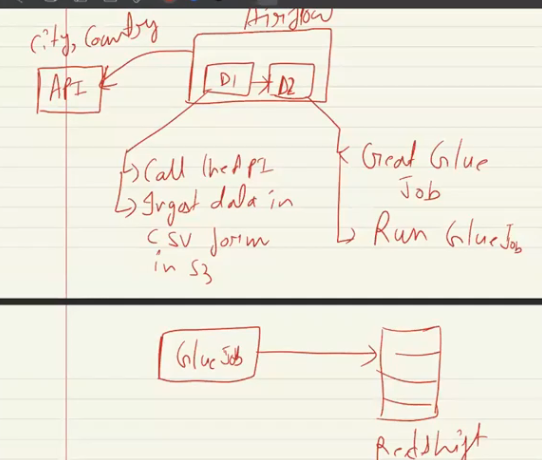 Airflow
City, Country
API
D1
D2
Call the API
Ingest data in
CSV form
in S3
Creat Glue
Job
Run Glue Job
Glue Job
Redshift